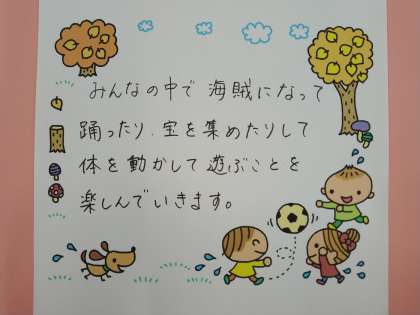 みんなの中で海賊になって
踊ったり、宝を集めたりして
体を動かして遊ぶことを
楽しんでいきます。